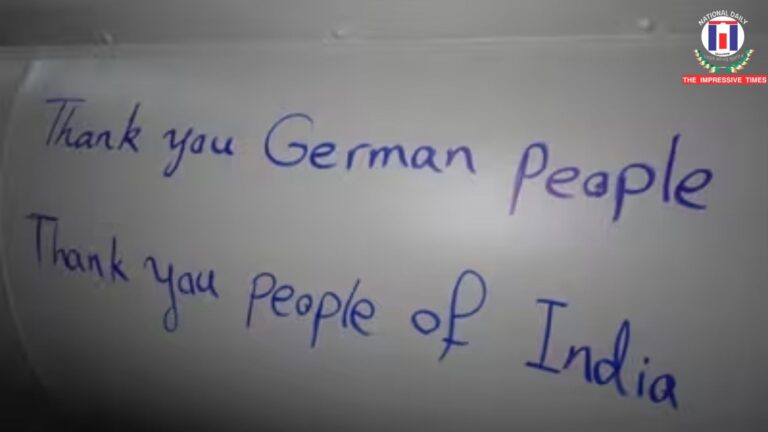 NATIONAL DAILY
THE IMPRESSIVE TIMES
Thank you German People
Thank you people of India